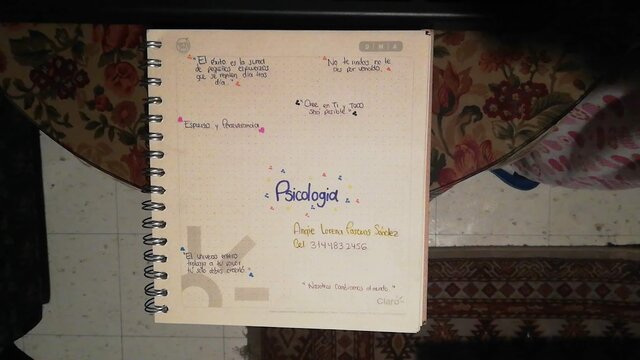 D M A
"El éxito es la suma
de pequeños esfuerzos
que se repiten día tras
día."
No te rindas no te
des por vencido.
"Cree en Ti y Todo
será posible"
Esfuerzo y Perseverancia
Psicologia
Angie Lorena Pascuas Sánchez
Cel 3144832456
"El Universo entero
trabaja a tu favor
tú solo debes creerlo."
"Nosotros Cambiamos el mundo."
Claro